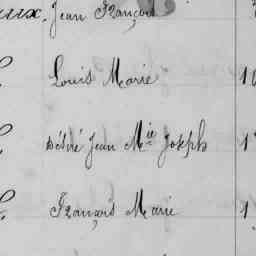 aux. Jean François
Louis Marie 1
Désiré Jean Mie Joseph 1
François Marie 1